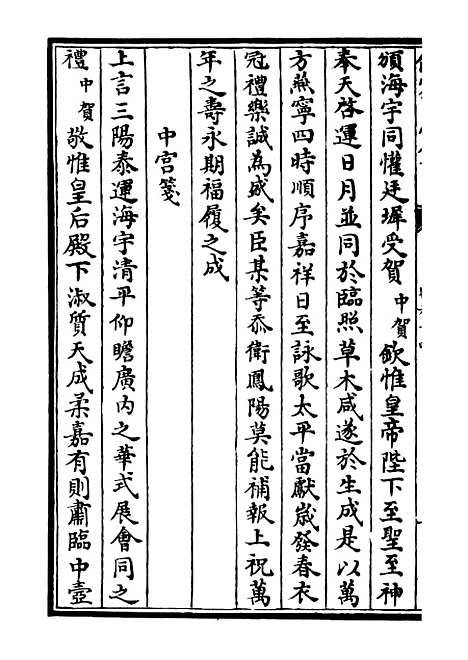 頒海宇同懽廷墀受賀中賀欽惟皇帝陛下至聖至神
奉天啓運日月並同於臨照草木咸遂於生成是以萬
方㷱寧四時順序嘉祥日至詠歌太平當獻歲發春衣
冠禮樂誠為盛矣臣某等忝衛鳳陽莫能補報上祝萬
年之壽永期福履之成
中宮箋
上言三陽泰運海宇清平仰瞻廣內之華式展會同之
禮中賀敬惟皇后殿下淑質天成柔嘉有則肅臨中壼